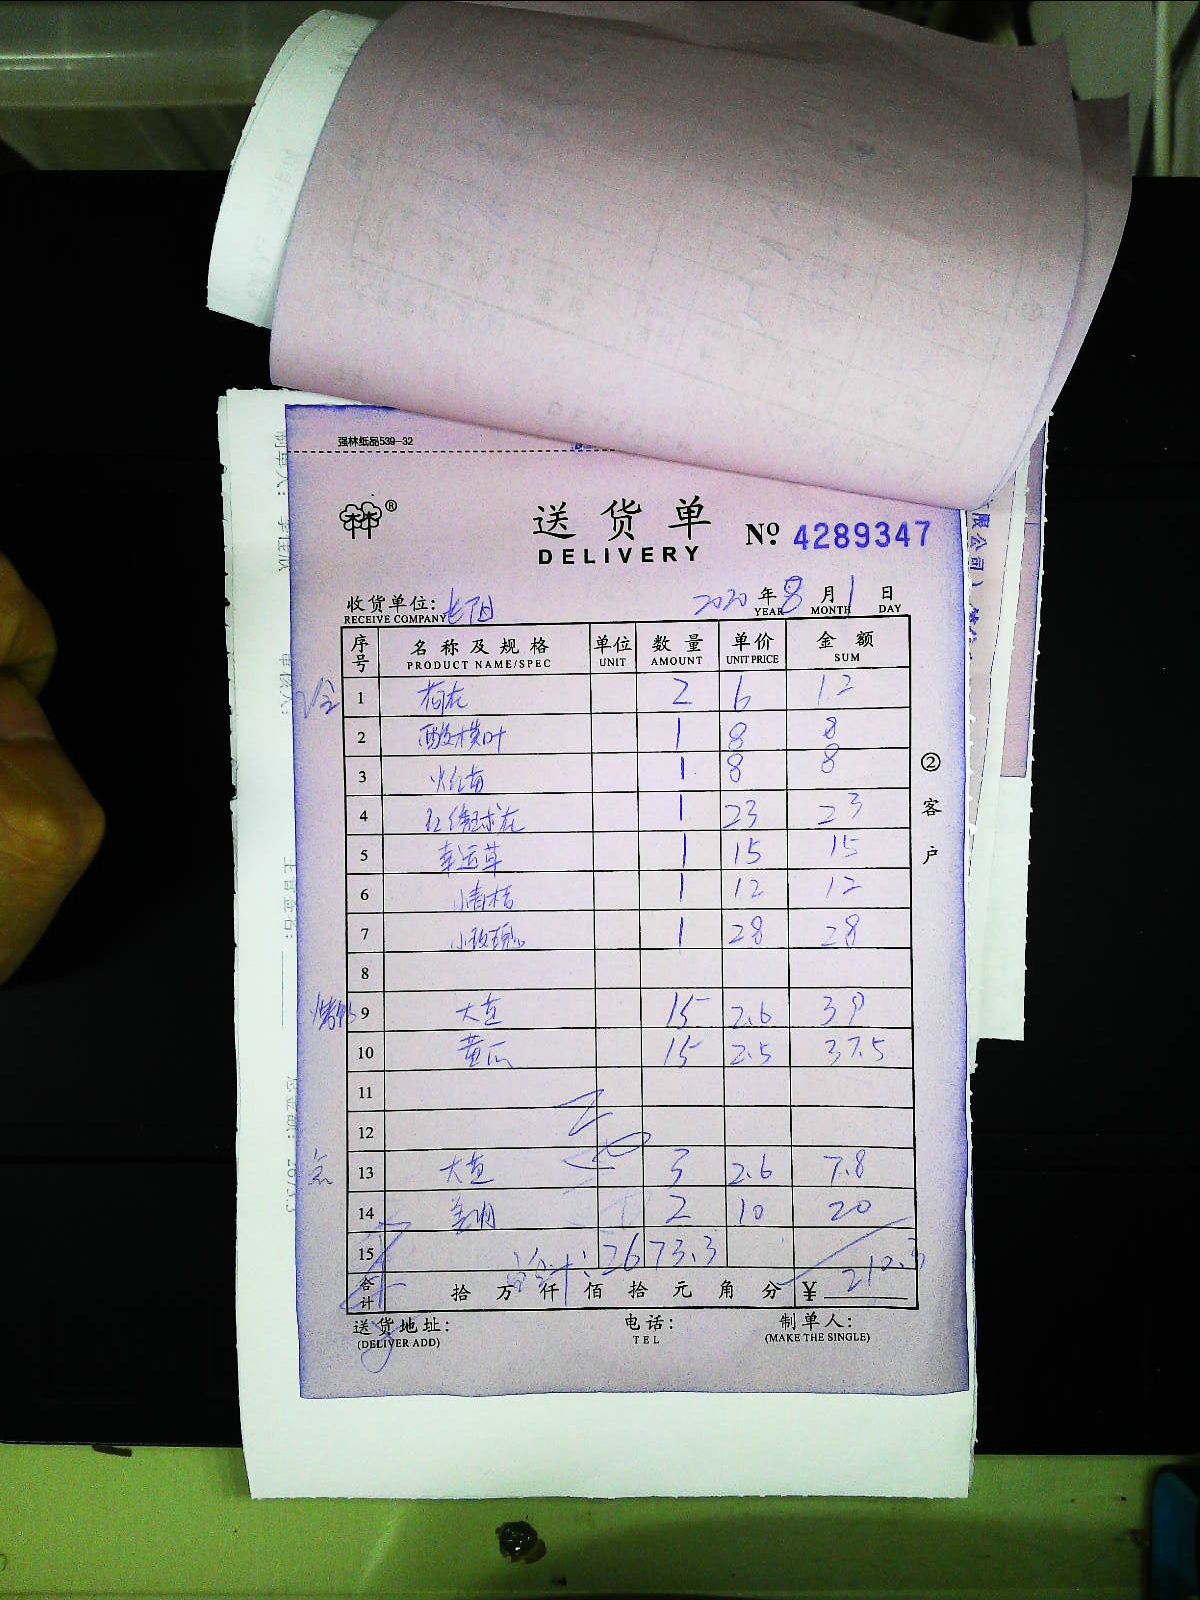 强林纸品539-32
送货单 № 4289347
DELIVERY
收货单位: 2020 年 8 月 1 日
RECEIVE COMPANY YEAR MONTH DAY
序号 名称及规格 单位 数量 单价 金额
PRODUCT NAME/SPEC UNIT AMOUNT UNIT PRICE SUM
1 荷花 2 6 12
2 酸模叶 1 8 8
3 火红苗 1 8 8
4 红绣球花 1 23 23
5 幸运草 1 15 15
6 小青桔 1 12 12
7 小玫瑰 1 28 28
8
9 大豆 15 2.6 39
10 黄瓜 15 2.5 37.5
11
12
13 大豆 3 2.6 7.8
14 2 10 20
15 合计: 2673.3
合计 拾 万 仟 佰 拾 元 角 分 ¥ 210.3
送货地址: 电话: 制单人:
(DELIVER ADD) TEL (MAKE THE SINGLE)
②客户
限公司)